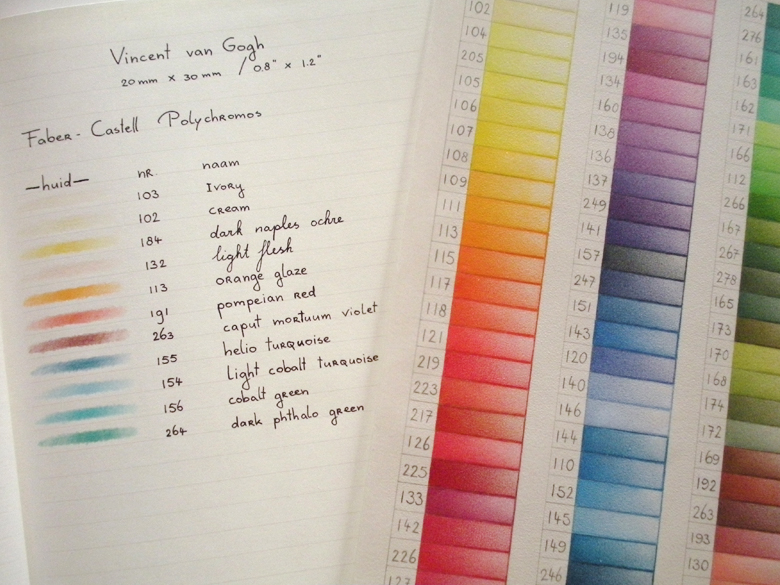 Vincent van Gogh
20mm x 30mm / 0.8" x 1.2"
Faber-Castell Polychromos
—huid— nR. naam
103 Ivory
102 cream
184 dark naples ochre
132 light flesh
113 orange glaze
191 pompeian red
263 caput mortuum violet
155 helio turquoise
154 light cobalt turquoise
156 cobalt green
264 dark phthalo green
102
104
205
105
106
107
108
109
111
113
115
117
118
121
219
223
217
126
225
133
142
226
127
119
135
194
134
160
138
136
137
249
141
157
247
151
143
120
140
146
144
110
152
145
149
246
264
276
161
163
162
171
166
112
266
167
267
278
165
173
170
168
174
172
169
192
263
193
130